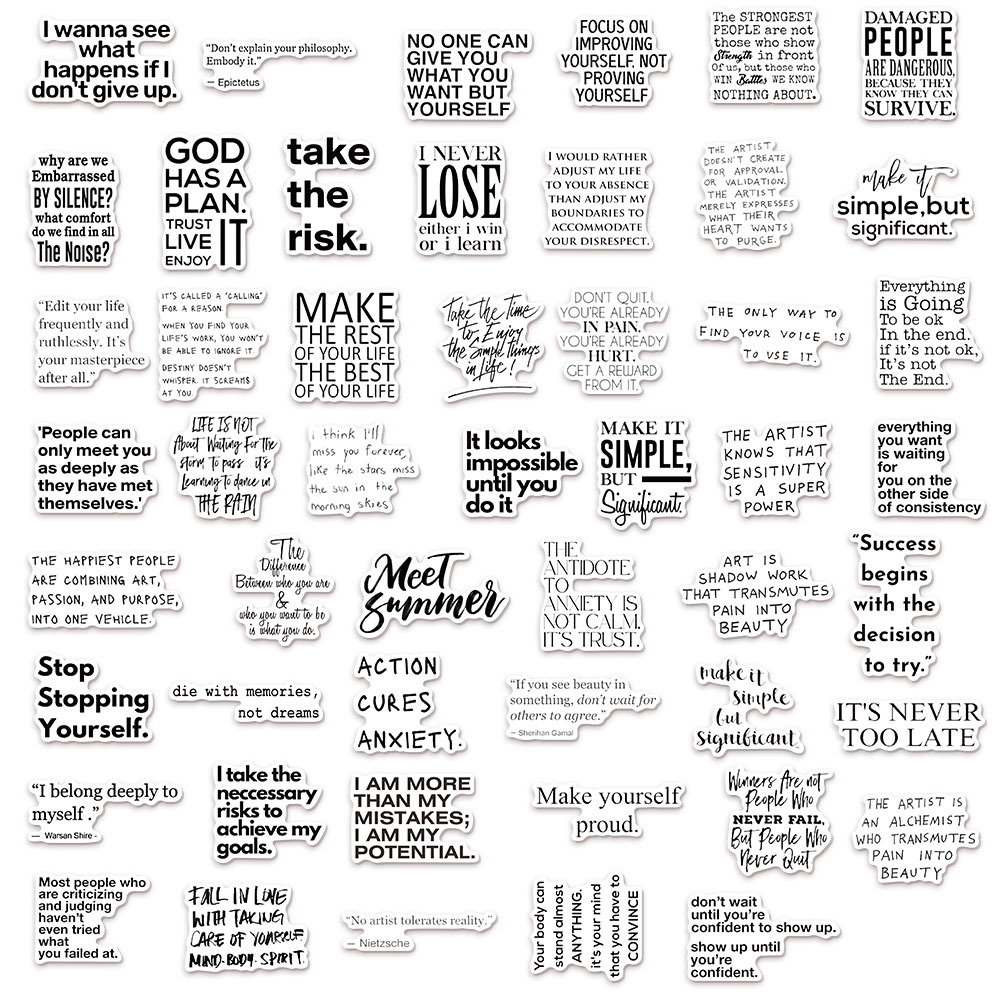 I wanna see
what
happens if I
don't give up.
“Don’t explain your philosophy.
Embody it.”
— Epictetus
NO ONE CAN
GIVE YOU
WHAT YOU
WANT BUT
YOURSELF
FOCUS ON
IMPROVING
YOURSELF, NOT
PROVING
YOURSELF
The STRONGEST
PEOPLE are not
those who show
Strength in front
Of us, but those who
WIN Battles WE KNOW
NOTHING ABOUT.
DAMAGED
PEOPLE
ARE DANGEROUS,
BECAUSE THEY
KNOW THEY CAN
SURVIVE.
why are we
Embarrassed
BY SILENCE?
what comfort
do we find in all
The Noise?
GOD
HAS A
PLAN.
TRUST
LIVE
ENJOY IT
take
the
risk.
I NEVER
LOSE
either i win
or i learn
I WOULD RATHER
ADJUST MY LIFE
TO YOUR ABSENCE
THAN ADJUST MY
BOUNDARIES TO
ACCOMMODATE
YOUR DISRESPECT.
THE ARTIST
DOESN'T CREATE
FOR APPROVAL
OR VALIDATION.
THE ARTIST
MERELY EXPRESSES
WHAT THEIR
HEART WANTS
TO PURGE.
make it
simple,but
significant.
“Edit your life
frequently and
ruthlessly. It’s
your masterpiece
after all.”
IT'S CALLED A "CALLING"
FOR A REASON.
WHEN YOU FIND YOUR
LIFE'S WORK, YOU WON'T
BE ABLE TO IGNORE IT.
DESTINY DOESN'T
WHISPER. IT SCREAMS
AT YOU.
MAKE
THE REST
OF YOUR LIFE
THE BEST
OF YOUR LIFE
Take the Time
to Enjoy
the Simple things
in Life!
DON'T QUIT.
YOU'RE ALREADY
IN PAIN.
YOU'RE ALREADY
HURT.
GET A REWARD
FROM IT.
THE ONLY WAY TO
FIND YOUR VOICE IS
TO USE IT.
Everything
is Going
To be ok
In the end.
if it's not ok,
It's not
The End.
'People can
only meet you
as deeply as
they have met
themselves.'
LIFE IS NOT
About Waiting For the
storm to pass it's
Learning to dance in
THE RAIN
i think i'll
miss you forever,
like the stars miss
the sun in the
morning skies
It looks
impossible
until you
do it
MAKE IT
SIMPLE,
BUT
Significant.
THE ARTIST
KNOWS THAT
SENSITIVITY
IS A SUPER
POWER
everything
you want
is waiting
for
you on the
other side
of consistency
THE HAPPIEST PEOPLE
ARE COMBINING ART,
PASSION, AND PURPOSE,
INTO ONE VEHICLE.
The
Difference
Between who you are
&
who you want to be
is what you do.
Meet
summer
THE
ANTIDOTE
TO
ANXIETY IS
NOT CALM.
IT'S TRUST.
ART IS
SHADOW WORK
THAT TRANSMUTES
PAIN INTO
BEAUTY
“Success
begins
with the
decision
to try.”
Stop
Stopping
Yourself.
die with memories,
not dreams
ACTION
CURES
ANXIETY.
“If you see beauty in
something, don’t wait for
others to agree.”
— Sherihan Gamal
make it
simple
but
significant.
IT'S NEVER
TOO LATE
“I belong deeply to
myself .”
— Warsan Shire -
I take the
neccessary
risks to
achieve my
goals.
I AM MORE
THAN MY
MISTAKES;
I AM MY
POTENTIAL.
Make yourself
proud.
Winners Are not
People Who
NEVER FAIL,
But People Who
Never Quit
THE ARTIST IS
AN ALCHEMIST
WHO TRANSMUTES
PAIN INTO
BEAUTY
Most people who
are criticizing
and judging
haven't
even tried
what
you failed at.
FALL IN LOVE
WITH TAKING
CARE OF YOURSELF.
MIND. BODY. SPIRIT.
“No artist tolerates reality.”
— Nietzsche
Your body can
stand almost
ANYTHING.
it's your mind
that you have to
CONVINCE
don't wait
until you're
confident to show up.
show up until
you're
confident.